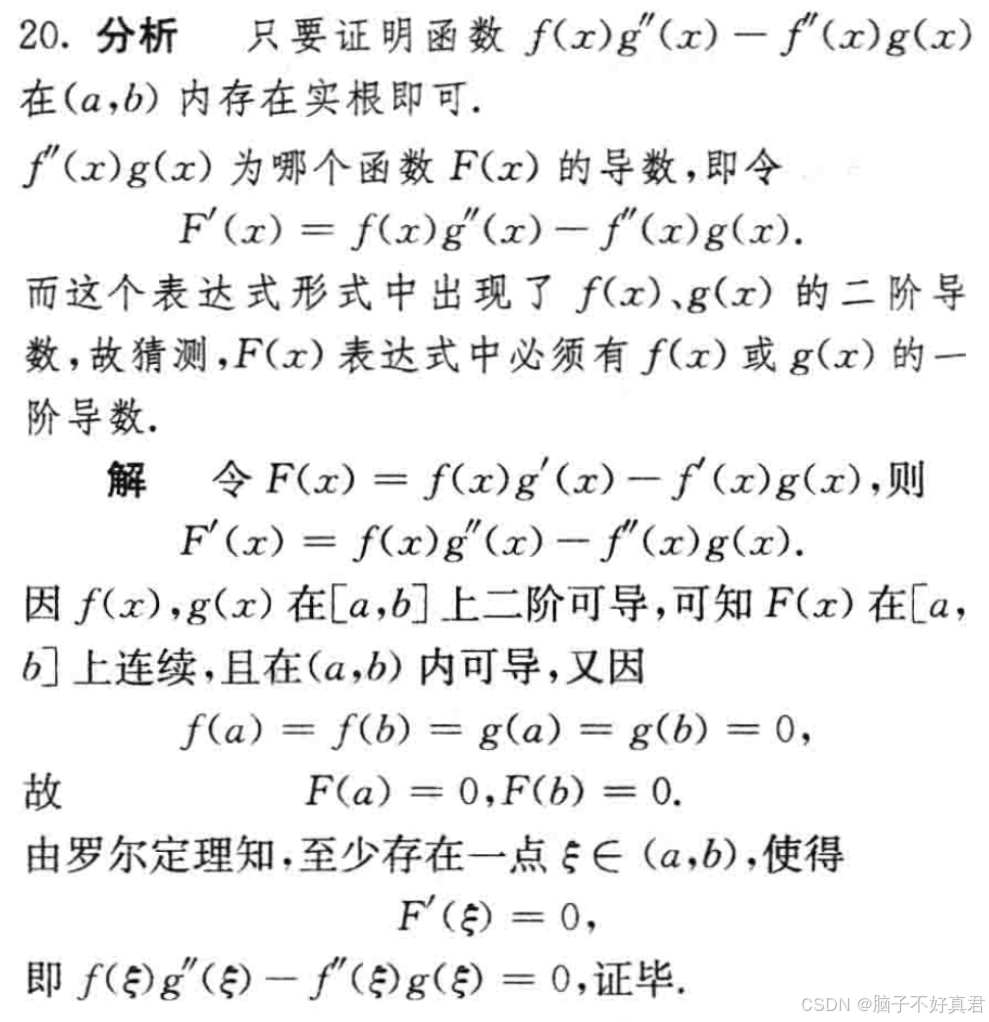 20. 分析 只要证明函数 f(x)g″(x) − f″(x)g(x)
在(a,b) 内存在实根即可.
f″(x)g(x) 为哪个函数 F(x) 的导数,即令
F′(x) = f(x)g″(x) − f″(x)g(x).
而这个表达式形式中出现了 f(x)、g(x) 的二阶导
数,故猜测,F(x) 表达式中必须有 f(x) 或 g(x) 的一
阶导数.
解 令 F(x) = f(x)g′(x) − f′(x)g(x),则
F′(x) = f(x)g″(x) − f″(x)g(x).
因 f(x),g(x) 在[a,b] 上二阶可导,可知 F(x) 在[a,
b] 上连续,且在(a,b) 内可导,又因
f(a) = f(b) = g(a) = g(b) = 0,
故 F(a) = 0,F(b) = 0.
由罗尔定理知,至少存在一点 ξ ∈ (a,b),使得
F′(ξ) = 0,
即 f(ξ)g″(ξ) − f″(ξ)g(ξ) = 0,证毕.
CSDN @脑子不好真君